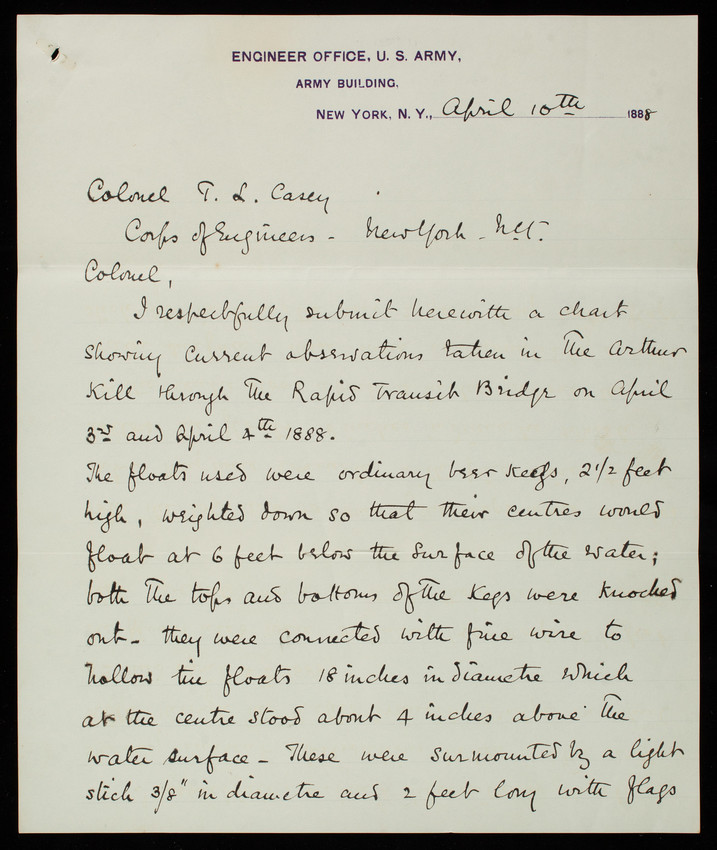 ENGINEER OFFICE, U. S. ARMY,
ARMY BUILDING,
NEW YORK, N. Y., April 10th 1888
Colonel T. L. Casey
Corps of Engineers - New York - N.Y.
Colonel,
I respectfully submit herewith a chart
showing current observations taken in the Arthur
Kill through the Rapid Transit Bridge on April
3rd and April 4th 1888.
The floats used were ordinary beer kegs, 2 1/2 feet
high, weighted down so that their centres would
float at 6 feet below the surface of the water;
both the tops and bottoms of the kegs were knocked
out - they were connected with fine wire to
hollow tin floats 18 inches in diametre which
at the centre stood about 4 inches above the
water surface - These were surmounted by a light
stick 3/8" in diametre and 2 feet long with flags